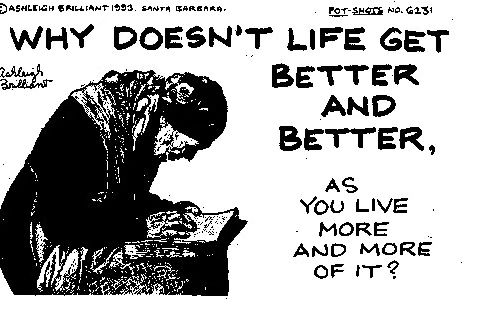 ©ASHLEIGH BRILLIANT 1993. SANTA BARBARA.
POT-SHOTS NO. 6231
WHY DOESN'T LIFE GET
BETTER
AND
BETTER,
Ashleigh
Brilliant
AS
YOU LIVE
MORE
AND MORE
OF IT?